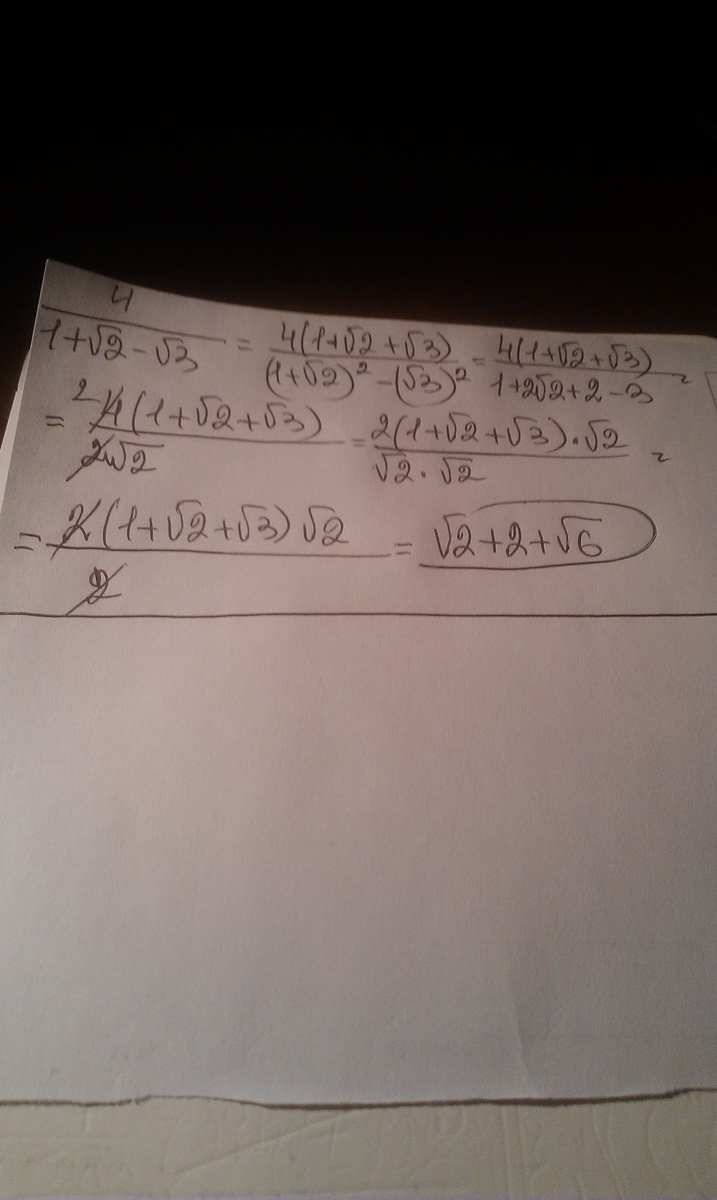 4/(1+√2−√3) = 4(1+√2+√3)/((1+√2)²−(√3)²) = 4(1+√2+√3)/(1+2√2+2−3) =
= 2 4(1+√2+√3)/(2√2) = 2(1+√2+√3)·√2/(√2·√2) =
= 2(1+√2+√3)√2/2 = √2+2+√6